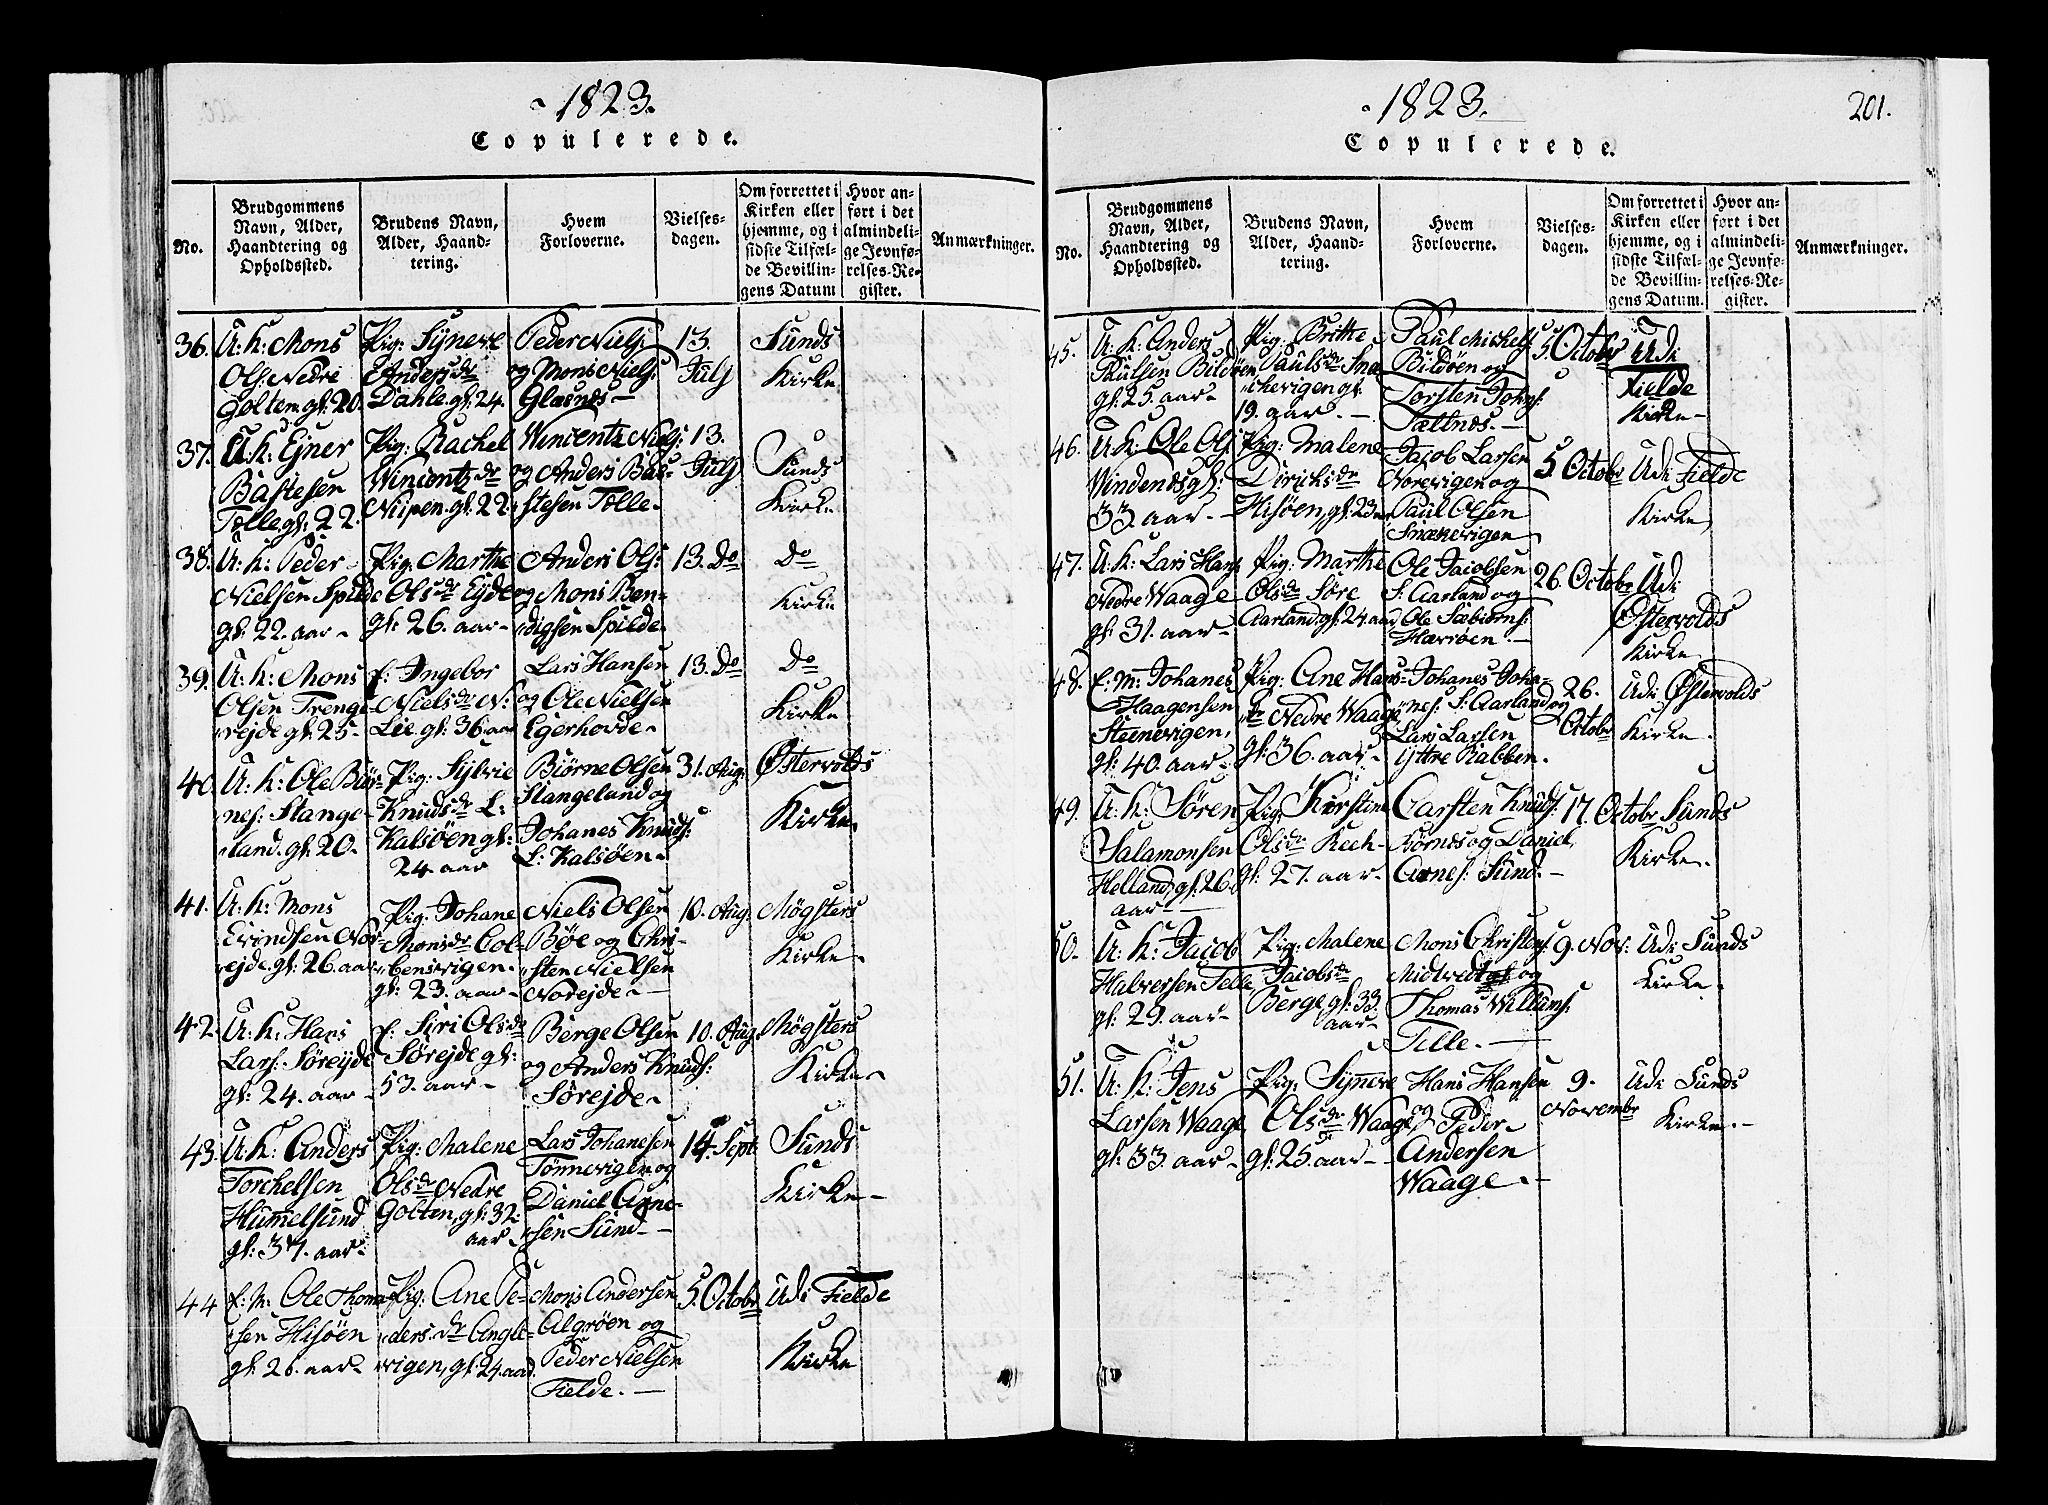 1823.
Copulerede.
No.
Brudgommens
Navn, Alder,
Haandtering og
Opholdssted.
Brudens Navn,
Alder, Haand-
tering.
Hvem
Forloverne.
Vielses-
dagen.
Om forrettet i
Kirken eller
hjemme, og i
sidste Tilfæl-
de Bevillin-
gens Datum
Hvor an-
ført i det
almindeli-
ge Jevnfø-
relses-Re-
gister.
Anmærkninger.
36.
U: K: Mons
Ols: Nedre
Golten. gl: 20.
Pig: Syneve
Andersdr
Dahle. gl: 24.
Peder Niels:
og Mons Niels:
Glæsnes -
13.
Julj
Sunds
Kirke
37.
U: K: Ejner
Bastesen
Tolle gl: 22.
Pig: Rachel
Wincentzdr
Niipen. gl: 22.
Wincentz Niels:
og Anders Bas-
stesen Tolle.
13.
Julj
Sunds
Kirke
38.
U: K: Peder
Nielsen Spilde
gl: 22. aar -
Pig: Marthe
Olsdr Eyde
gl: 26. aar -
Anders Ols:
og Mons Ben-
digsen Spilde.
13. Do
Do
Kirke
39.
U: K: Mons
Olsen Trenge-
rejde gl: 25 -
f: Ingebor
Nielsdr N:
Lie. gl: 36. aar
Lars Hansen
og Ole Nielsen
Egerhovde.
13. Do
Do
Kirke
40.
U: K: Ole Biör-
nes: Stange-
land. gl: 20.
Pig: Sylvie
Knudsdr L:
Kalsöen gl:
24. aar
Biørne Olsen
Stangeland og
Johanes Knuds:
L: Kalsöen.
31. Aug:
Østervolds
Kirke.
41.
U: K: Mons
Evindsen Nor-
ejde. gl: 26. aar
Pig: Johane
Monsdr Col-
bensvigen.
gl: 23. aar -
Niels Olsen
Böe og Chri-
sten Nielsen
Norejde. -
10. Aug:
Møgsters
Kirke.
42.
U: K: Hans
Lars: Söreyde
gl: 24. aar -
f: Siri Olsdr
Sørejde gl:
53. aar -
Berge Olsen
og Anders Knuds:
Sørejde.
10. Aug:
Møgsters
Kirke.
43.
U: K: Anders
Torchelsen
Hummelsund
gl: 37. aar -
Pig: Malene
Olsdr Nedre
Golten, gl: 32.
aar -
Lars Johanesen
Tönnevigen og
Daniel Arne-
sen Sund -
14. Sept:
Sunds
Kirke -
44
E: M: Ole Thoma-
sen Hisöen
gl: 26. aar -
Pig: Ane Pe-
dersdr Angle-
vigen, gl: 24. aar.
Mons Andersen
Algröen og
Peder Nielsen
Fielde. -
5. Octobr
Udi Fielde
Kirke
1823.
201.
Copulerede.
No.
Brudgommens
Navn, Alder,
Haandtering og
Opholdssted.
Brudens Navn,
Alder, Haand-
tering.
Hvem
Forloverne.
Vielses-
dagen.
Om forrettet i
Kirken eller
hjemme, og i
sidste Tilfæl-
de Bevillin-
gens Datum.
Hvor an-
ført i det
almindeli-
ge Jevnfø-
relses-Re-
gister.
Anmærkninger.
45.
U: K: Anders
Paulsen Bildöen
gl: 25. aar -
Pig: Britthe
Paulsdr Snæ-
chevigen gl:
19. aar. -
Paul Michels:
Bildöen og
Torsten Johns:
Tællnes. -
5. Octobr
Udi
Fielde
Kirke -
46.
U: K: Ole Ols:
Windenes gl:
33. aar. -
Pig: Malene
Diricksdr
Hisöen, gl: 23 aar
Jacob Larsen
Norevigen og
Paul Olsen
Snækevigen
5. Octobr
Udi Fielde
Kirke
47.
U: K: Lars Hans:
Nedre Waage
gl: 31. aar -
Pig: Marthe
Olsdr Søre
Aarland. gl: 24. aar
Ole Jacobsen
S: Aarland og
Ole Sæbiörns:
Hærröen. -
26. Octobr
Udi
Østervolds
Kirke
48.
E: M: Johanes
Haagensen
Steenevigen,
gl: 40. aar -
Pig: Ane Hans-
dr Nedre Waage
gl: 36. aar -
Johanes Joha-
nes: S: Aarland og
Lars Larsen
Yttre Rabben.
26.
Octobr
Udi Østervolds
Kirke.
49.
U: K: Søren
Salamonsen
Helland, gl: 26.
aar -
Pig: Kirstine
Olsdr Kech-
gl: 27. aar -
Carsten Knuds:
Börnes og Daniel
Arnes: Sund. -
17. Octobr
Sunds
Kirke.
50.
U: K: Jacob
Halversen Telle,
gl: 29. aar -
Pig: Malene
Jacobsdr
Berge, gl: 33.
aar -
Mons Christens:
Midtvedt og
Thomas Willums:
Telle. -
9. Nov:
Udi Sunds
Kirke.
51.
U: K: Jens
Larsen Waage
gl: 33. aar -
Pig: Synneve
Olsdr Waage
gl: 25. aar -
Hans Hansen
og Peder
Andersen
Waage. -
9.
Novembr
Udi Sunds
Kirke. -